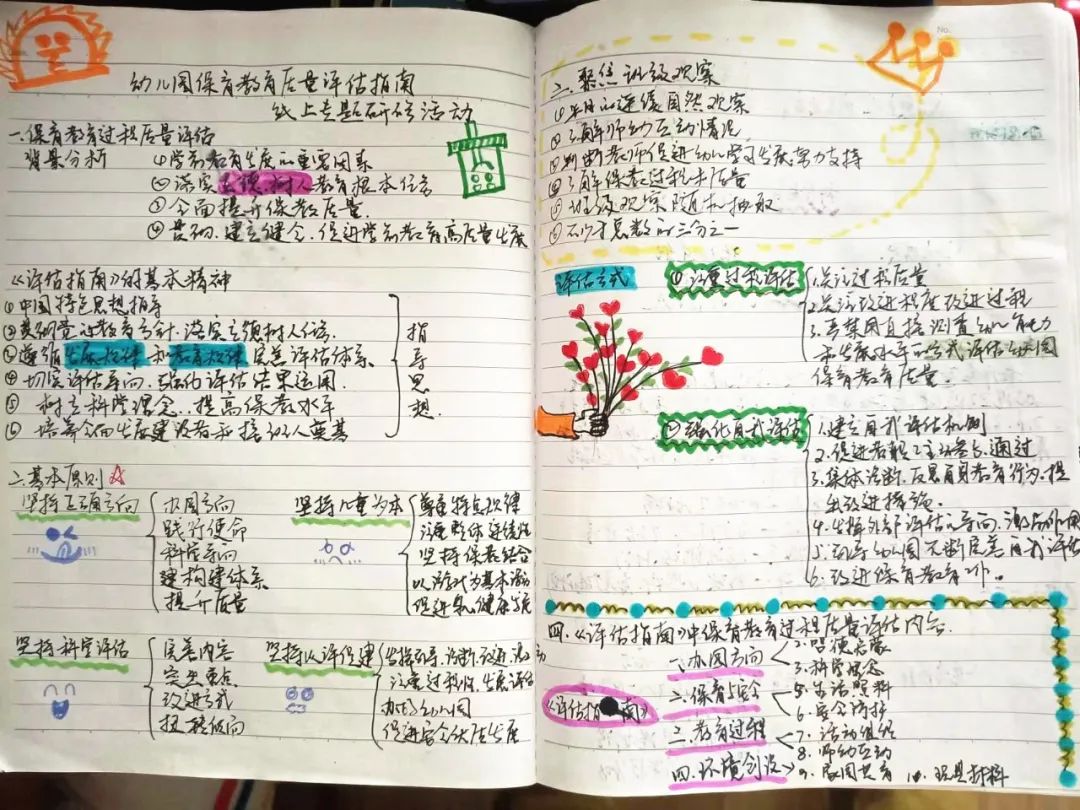 幼儿园保育教育质量评估指南
线上专题研磨活动
一.保育教育过程质量评估
背景分析 ①学前教育发展的重要因素
②落实立德.树人教育根本任务
③全面提升保教质量.
④基础.建立健全.促进学前教育高质量发展
《评估指南》的基本精神
①中国特色思想指导
②基础贯的教育方针.落实立德树人任务.
③遵循发展规律和教育规律完善评估体系
④切实评估导向.强化评估结果运用.
⑤树立科学理念.提高保教水平
⑥培养全面发展建设者和接班人奠基
指导思想
二.基本原则
坚持正确方向
办园方向
践行使命
科学导向
建构建体系
提升质量
坚持儿童为本
尊重特点规律
注重整体连续性
坚持保教结合
以游戏为基本活动
促进健康发展
坚持科学评估
完善内容
突出重点
改进方式
扭转倾向
坚持以评促建
发挥引导.诊断.改进.激励
注重过程性.发展评估
办好幼儿园
促进安全优质发展
No.
二.聚焦班级观察
①半日的连续自然观察
②了解师幼互动情况
③判断教师促进幼儿学习发展.努力支持
④了解保教过程和质量
⑤班级观察随机抽取
⑥不少于总数的三分之一
评估方式 ①注重过程评估
1.关注过程质量
2.关注改进程度改进过程
3.严禁用直接测查幼儿能力
和发展水平的方式评估幼儿园
保育教育质量.
②强化自我评估
1.建立自我评估机制
2.促进教职工主动参与.通过
3.集体诊断.反思自身教育行为.提
出改进措施.
4.发挥外部评估的导向.激励作用
5.引导幼儿园不断完善自我评估
6.改进保育教育工作.
四.《评估指南》中保育教育过程质量评估内容.
《评估指南》
一.办园方向
二.保育与安全
三.教育过程
四.环境创设
2.品德启蒙
3.科学理念
5.生活照料
6.安全防护
7.活动组织
8.师幼互动
9.家园共育 10.玩具材料